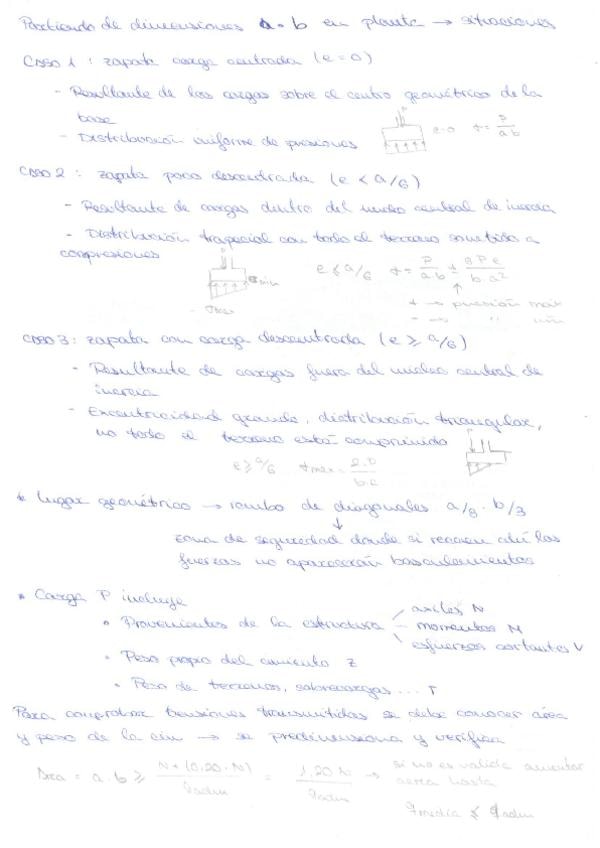 Partiendo de dimensiones a·b en planta → situaciones
CASO 1: zapata carga centrada (e=0)
- Resultante de las cargas sobre el centro geométrico de la
base
- Distribución uniforme de presiones
e=0 σ = P/a·b
CASO 2: zapata poco descentrada (e < a/6)
- Resultante de cargas dentro del núcleo central de inercia
- Distribución trapecial con todo el terreno sometido a
compresiones
σmin
σmax
e ≤ a/6 σ = P/a·b ± 6Pe/b·a²
+ → presión máx
- → " mín
CASO 3: zapata con carga descentrada (e ≥ a/6)
- Resultante de cargas fuera del núcleo central de
inercia
- Excentricidad grande, distribución triangular,
no todo el terreno está comprimido
e ≥ a/6 σmax =
* Lugar geométrico → rombo de diagonales a/3 · b/3
↓
zona de seguridad donde si recaen ahí las
fuerzas no aparecerán basculamientos
* Carga P incluye
• Provenientes de la estructura
axiles N
momentos M
esfuerzos cortantes V
• Peso propio del cimiento Z
• Peso de terrenos, sobrecargas... T
Para comprobar tensiones transmitidas se debe conocer área
y peso de la cim → se predimensiona y verifica
Área = a·b ≥ N+(0,20·N)/qadm = 1,20 N/qadm → si no es válida aumentar
área hasta
qmedia ≤ qadm